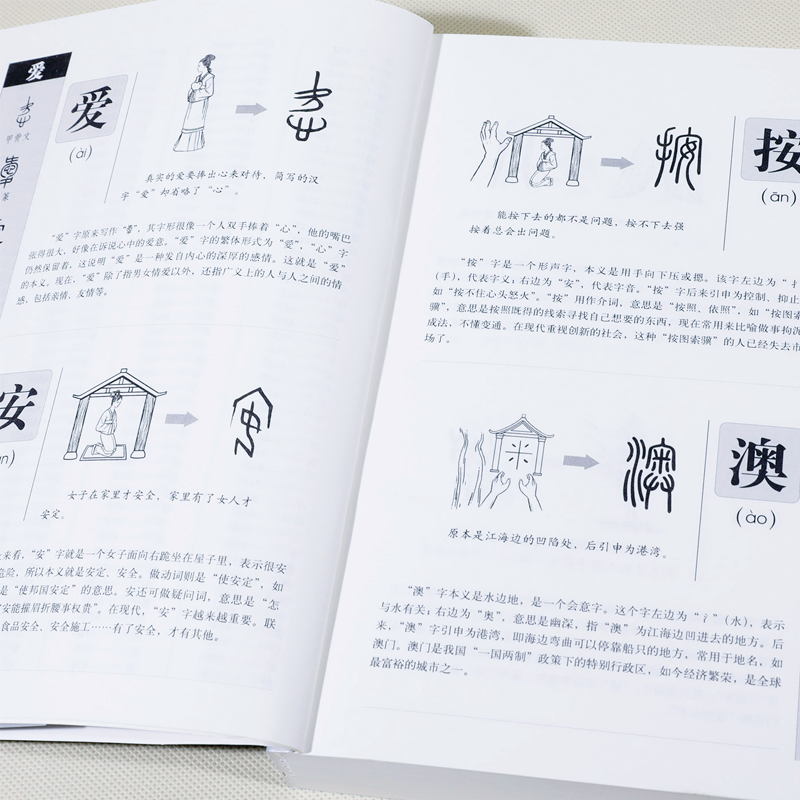 爱
甲骨文
篆
爱
(ài)
真实的爱要捧出心来对待,简写的汉
字“爱”却省略了“心”。
“爱”字原来写作“ ”,其字形很像一个人双手捧着“心”,他的嘴巴
张得很大,好像在诉说心中的爱意。“爱”字的繁体形式为“愛”,“心”字
仍然保留着,这说明“爱”是一种发自内心的深厚的感情。这就是“爱”
的本义。现在,“爱”除了指男女情爱以外,还指广义上的人与人之间的情
感,包括亲情、友情等。
安
女子在家里才安全,家里有了女人才
安定。
来看,“安”字就是一个女子面向右跪坐在屋子里,表示很安
危险,所以本义就是安定、安全。做动词则是“使安定”,如
是“使邦国安定”的意思。安还可做疑问词,意思是“怎
安能摧眉折腰事权贵”。在现代,“安”字越来越重要。联
食品安全、安全施工……有了安全,才有其他。
按
(àn)
能按下去的都不是问题,按不下去强
按着总会出问题。
“按”字是一个形声字,本义是用手向下压或摁。该字左边为“扌
(手),代表字义;右边为“安”,代表字音。“按”字后来引申为控制、抑止
如“按不住心头怒火”。“按”用作介词,意思是“按照、依照”,如“按图索
骥”,意思是按照既得的线索寻找自己想要的东西,现在常用来比喻做事拘泥
成法,不懂变通。在现代重视创新的社会,这种“按图索骥”的人已经失去市
场了。
米
澳
(ào)
原本是江海边的凹陷处,后引申为港湾。
“澳”字本义是水边地,是一个会意字。这个字左边为“氵”(水),表示
与水有关;右边为“奥”,意思是幽深,指“澳”为江海边凹进去的地方。后
来,“澳”字引申为港湾,即海边弯曲可以停靠船只的地方,常用于地名,如
澳门。澳门是我国“一国两制”政策下的特别行政区,如今经济繁荣,是全球
最富裕的城市之一。